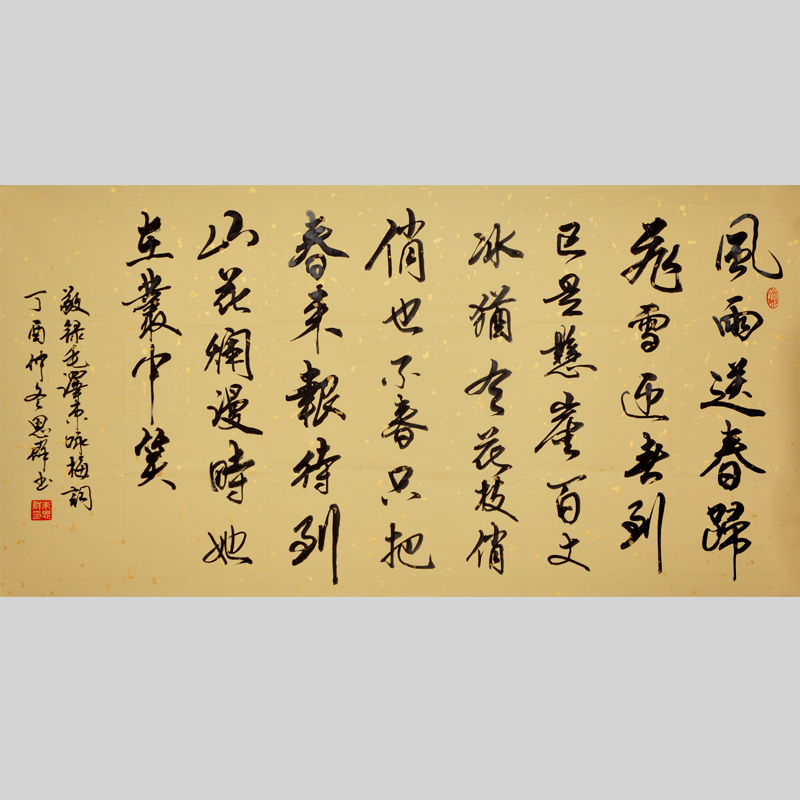 風雨送春歸
飛雪迎春到
已是懸崖百丈
冰猶有花枝俏
俏也不春只把
春來報待到
山花爛漫時她
在叢中笑
敬録毛澤東咏梅詞
丁酉仲冬思群书